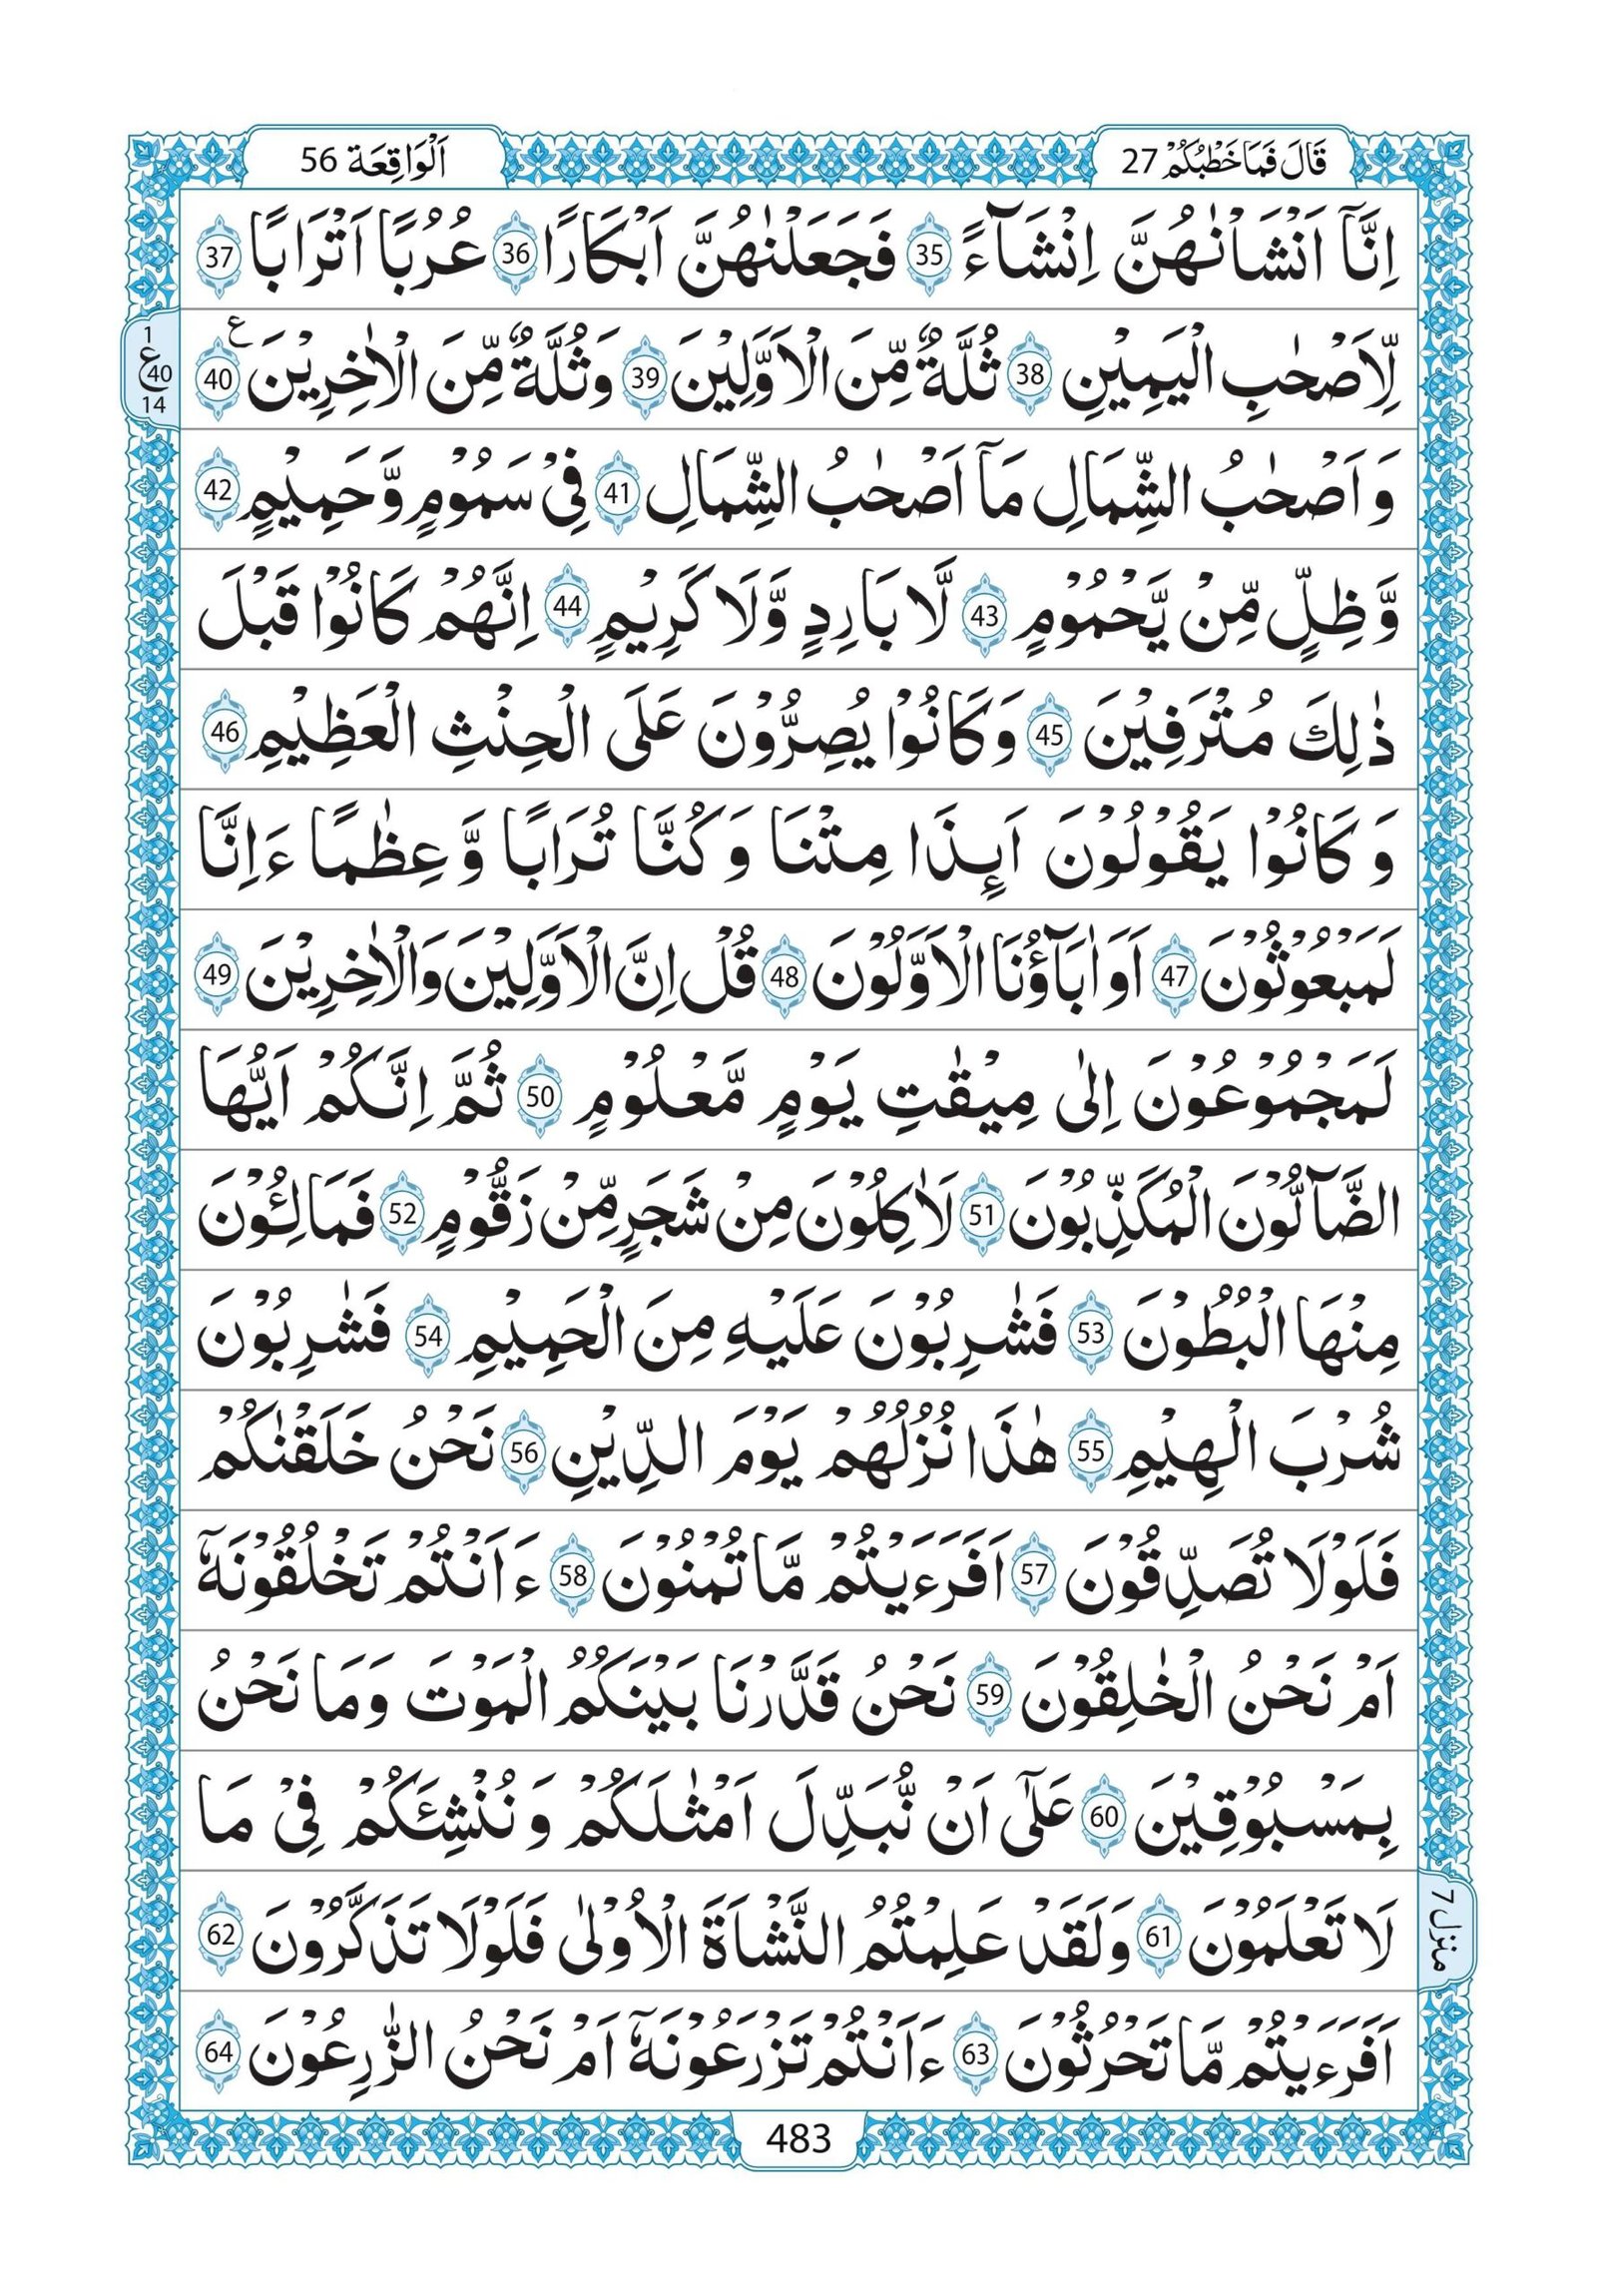 قَالَ فَمَا خَطْبُكُمْ 27
اَلْوَاقِعَة 56
اِنَّآ اَنْشَاْنٰهُنَّ اِنْشَآءً 35 فَجَعَلْنٰهُنَّ اَبْكَارًا 36 عُرُبًا اَتْرَابًا 37
لِّاَصْحٰبِ الْيَمِيْنِ 38 ثُلَّةٌ مِّنَ الْاَوَّلِيْنَ 39 وَثُلَّةٌ مِّنَ الْاٰخِرِيْنَ ع 40
1
ع 40
14
وَاَصْحٰبُ الشِّمَالِ مَآ اَصْحٰبُ الشِّمَالِ 41 فِيْ سَمُوْمٍ وَّحَمِيْمٍ 42
وَّظِلٍّ مِّنْ يَّحْمُوْمٍ 43 لَّا بَارِدٍ وَّلَا كَرِيْمٍ 44 اِنَّهُمْ كَانُوْا قَبْلَ
ذٰلِكَ مُتْرَفِيْنَ 45 وَكَانُوْا يُصِرُّوْنَ عَلَى الْحِنْثِ الْعَظِيْمِ 46
وَكَانُوْا يَقُوْلُوْنَ اَىِٕذَا مِتْنَا وَكُنَّا تُرَابًا وَّعِظٰمًا ءَاِنَّا
لَمَبْعُوْثُوْنَ 47 اَوَاٰبَآؤُنَا الْاَوَّلُوْنَ 48 قُلْ اِنَّ الْاَوَّلِيْنَ وَالْاٰخِرِيْنَ 49
لَمَجْمُوْعُوْنَ اِلٰى مِيْقٰتِ يَوْمٍ مَّعْلُوْمٍ 50 ثُمَّ اِنَّكُمْ اَيُّهَا
الضَّآلُّوْنَ الْمُكَذِّبُوْنَ 51 لَاٰكِلُوْنَ مِنْ شَجَرٍ مِّنْ زَقُّوْمٍ 52 فَمَالِـُٔوْنَ
مِنْهَا الْبُطُوْنَ 53 فَشٰرِبُوْنَ عَلَيْهِ مِنَ الْحَمِيْمِ 54 فَشٰرِبُوْنَ
شُرْبَ الْهِيْمِ 55 هٰذَا نُزُلُهُمْ يَوْمَ الدِّيْنِ 56 نَحْنُ خَلَقْنٰكُمْ
فَلَوْلَا تُصَدِّقُوْنَ 57 اَفَرَءَيْتُمْ مَّا تُمْنُوْنَ 58 ءَاَنْتُمْ تَخْلُقُوْنَهٗٓ
اَمْ نَحْنُ الْخٰلِقُوْنَ 59 نَحْنُ قَدَّرْنَا بَيْنَكُمُ الْمَوْتَ وَمَا نَحْنُ
بِمَسْبُوْقِيْنَ 60 عَلٰٓى اَنْ نُّبَدِّلَ اَمْثٰلَكُمْ وَنُنْشِئَكُمْ فِيْ مَا
لَا تَعْلَمُوْنَ 61 وَلَقَدْ عَلِمْتُمُ النَّشْاَةَ الْاُوْلٰى فَلَوْلَا تَذَكَّرُوْنَ 62
منزل 7
اَفَرَءَيْتُمْ مَّا تَحْرُثُوْنَ 63 ءَاَنْتُمْ تَزْرَعُوْنَهٗٓ اَمْ نَحْنُ الزّٰرِعُوْنَ 64
483